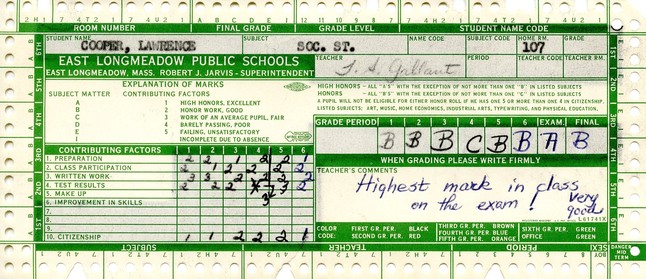 ROOM NUMBER FINAL GRADE GRADE LEVEL STUDENT NAME CODE
STUDENT NAME SUBJECT NAME CODE SUBJECT CODE HOME RM. GRADE RM.
COOPER, LAWRENCE SOC. ST. 107
EAST LONGMEADOW PUBLIC SCHOOLS
EAST LONGMEADOW, MASS. ROBERT J. JARVIS - SUPERINTENDENT
TEACHER PERIOD TEACHER CODE TEACHER RM.
EXPLANATION OF MARKS
SUBJECT MATTER CONTRIBUTING FACTORS
A 1 HIGH HONORS, EXCELLENT
B 2 HONOR WORK, GOOD
C 3 WORK OF AN AVERAGE PUPIL, FAIR
D 4 BARELY PASSING, POOR
E 5 FAILING, UNSATISFACTORY
INCOMPLETE DUE TO ABSENCE
HIGH HONORS - ALL "A'S" WITH THE EXCEPTION OF NOT MORE THAN ONE "B" IN LISTED SUBJECTS
HONORS - ALL "B'S" WITH THE EXCEPTION OF NOT MORE THAN ONE "C" IN LISTED SUBJECTS
A PUPIL WILL NOT BE ELIGIBLE FOR EITHER HONOR ROLL IF HE HAS ONE 5 OR MORE THAN ONE 4 IN CITIZENSHIP.
LISTED SUBJECTS: ART, MUSIC, HOME ECONOMICS, INDUSTRIAL ARTS, TYPEWRITING, AND PHYSICAL EDUCATION.
GRADE PERIOD 1 2 3 4 5 6 EXAM. FINAL
B B B C B B A B
WHEN GRADING PLEASE WRITE FIRMLY
CONTRIBUTING FACTORS 1 2 3 4 5 6
1. PREPARATION 2 2 1 2 2 1
2. CLASS PARTICIPATION
3. WRITTEN WORK
4. TEST RESULTS
5. MAKE UP
6. IMPROVEMENT IN SKILLS
10. CITIZENSHIP 1 1 2 2 2 1
TEACHER'S COMMENTS
Highest mark in class
on the exam! Very
good
COLOR CODE: FIRST GR. PER. BLACK THIRD GR. PER. BROWN SIXTH GR. PER. GREEN
SECOND GR. PER. RED FOURTH GR. PER. BLUE OFFICE GREEN
FIFTH GR. PER. ORANGE
SUBJECT TEACHER PERIOD SEX